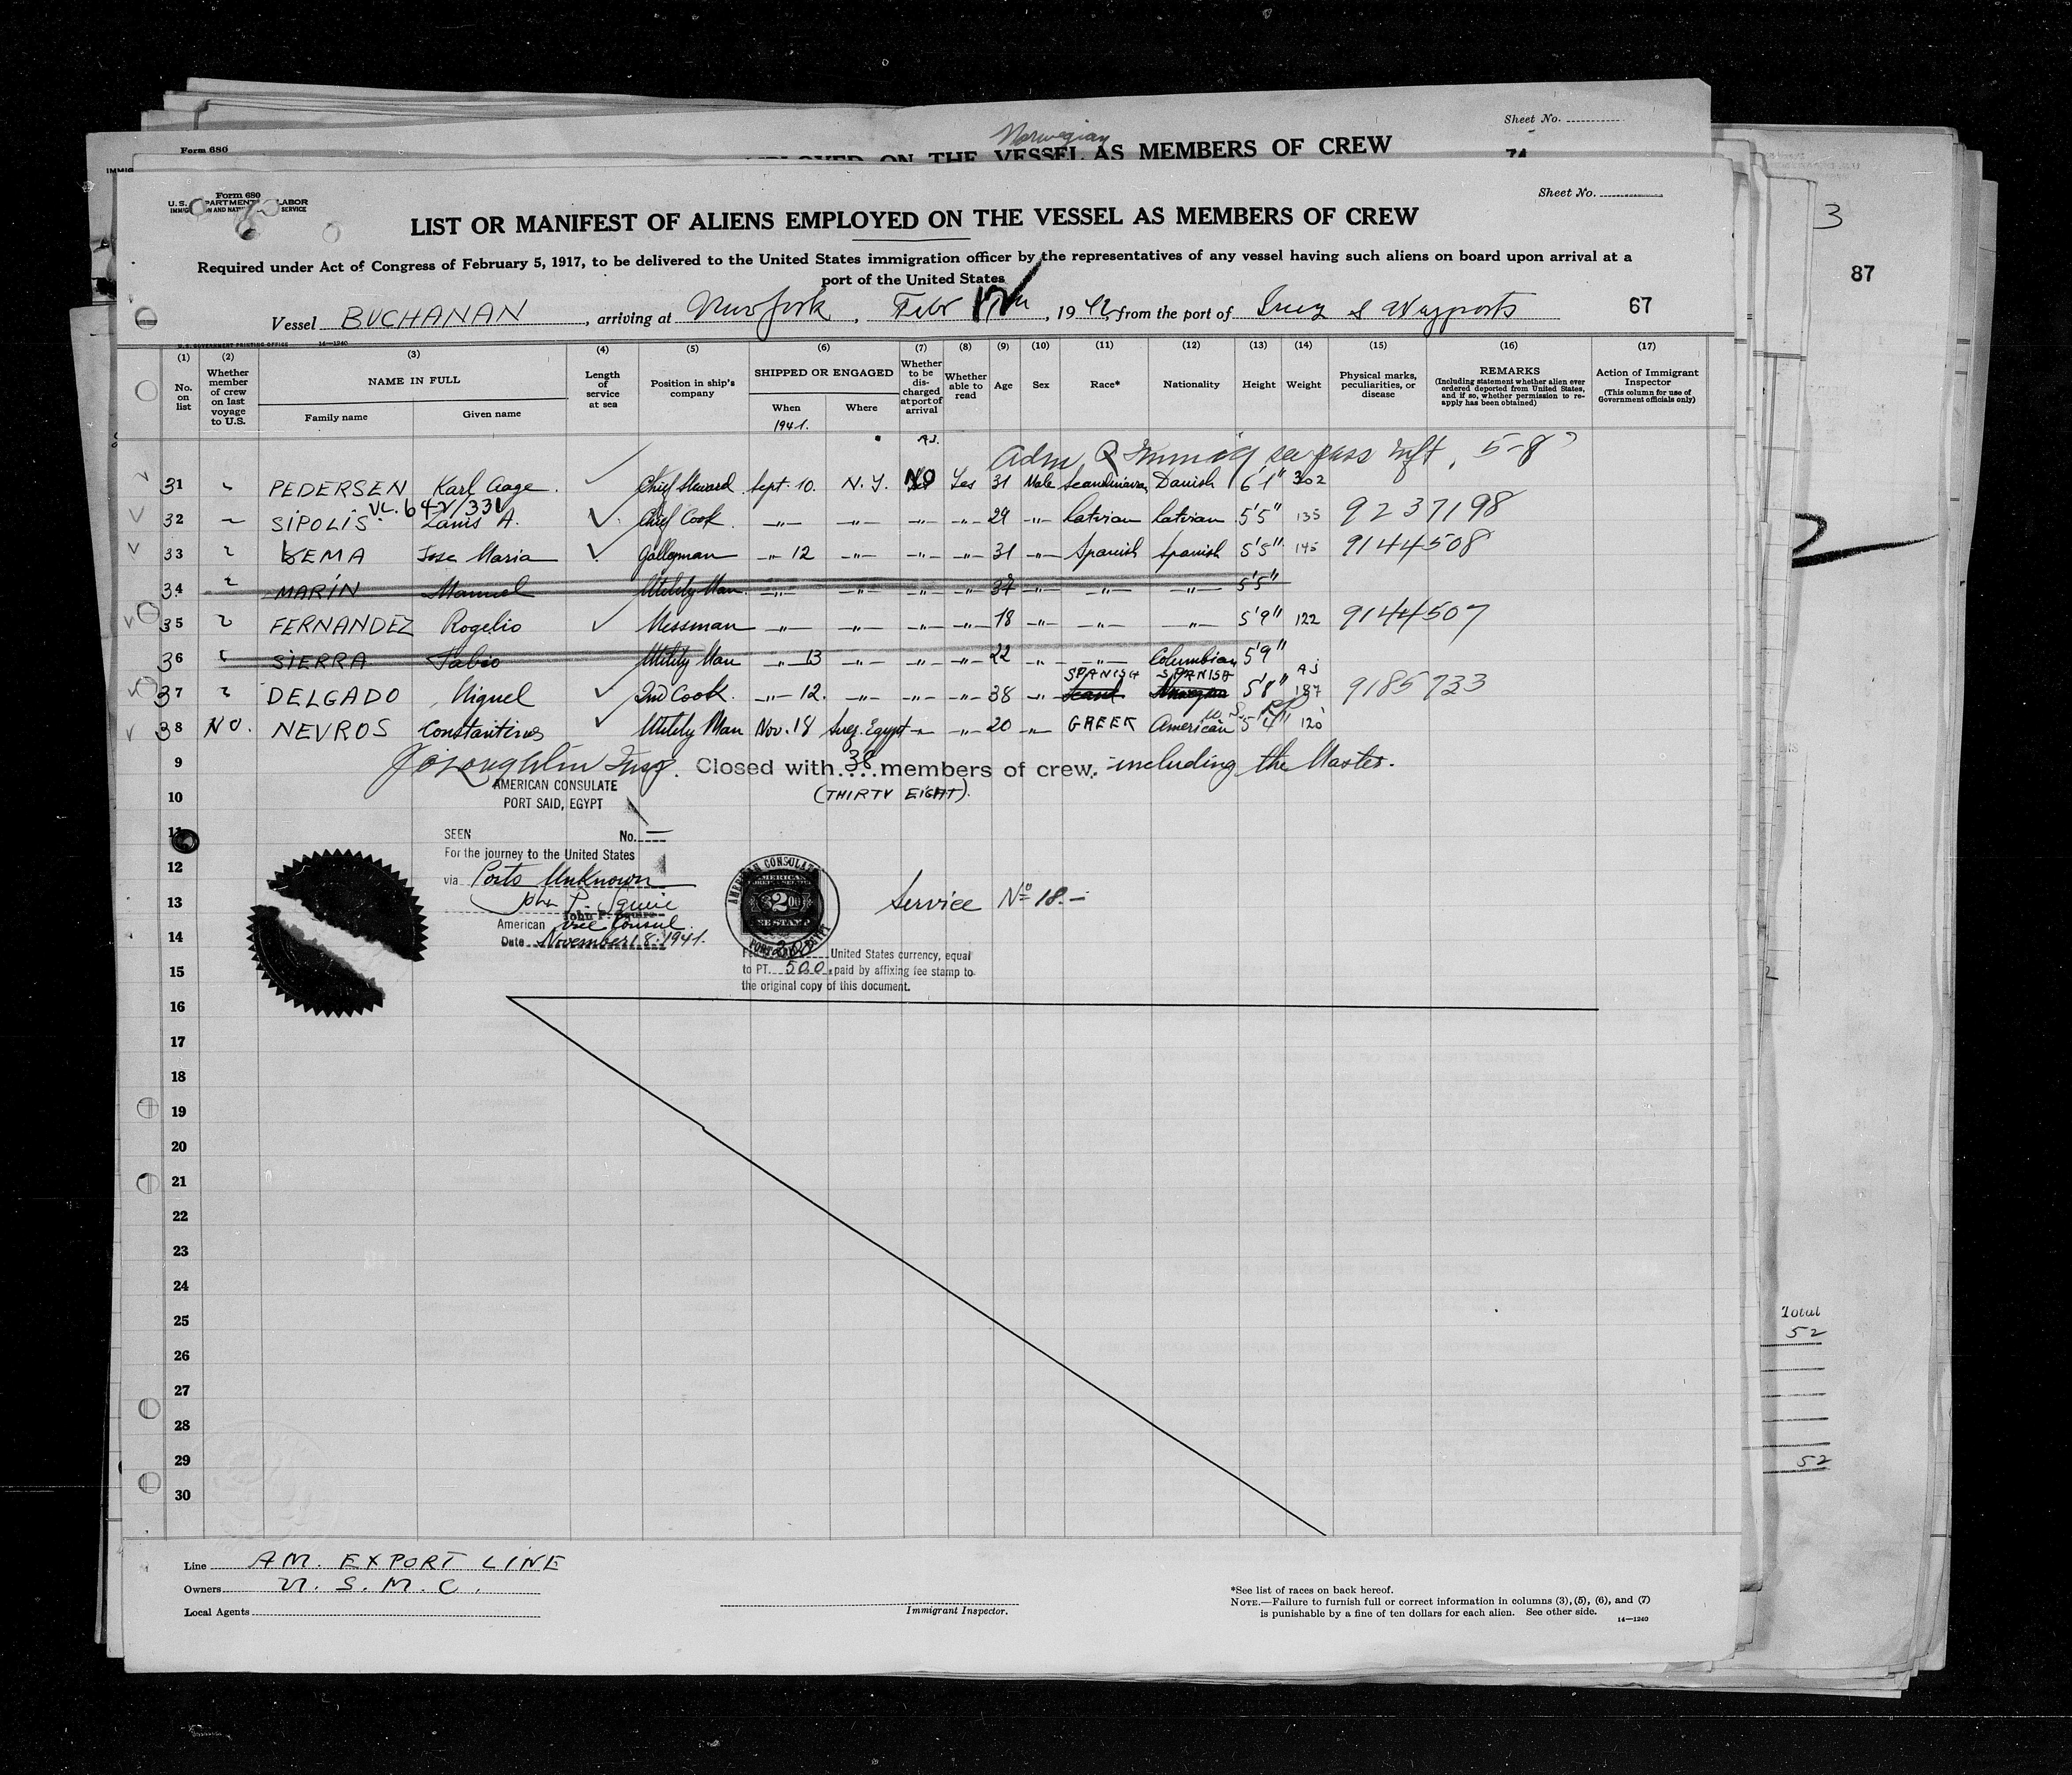 Sheet No.
Norwegian
Form 680
EMPLOYED ON THE VESSEL AS MEMBERS OF CREW
74
Form 680
U.S. DEPARTMENT OF LABOR
IMMIGRATION AND NATURALIZATION SERVICE
Sheet No.
3
87
LIST OR MANIFEST OF ALIENS EMPLOYED ON THE VESSEL AS MEMBERS OF CREW
Required under Act of Congress of February 5, 1917, to be delivered to the United States immigration officer by the representatives of any vessel having such aliens on board upon arrival at a
port of the United States
Vessel BUCHANAN, arriving at New York, Febr 12th, 1942, from the port of Suez & Wayports 67
U.S. GOVERNMENT PRINTING OFFICE 14—1240
(1) No. on list
(2) Whether member of crew on last voyage to U.S.
(3) NAME IN FULL Family name Given name
(4) Length of service at sea
(5) Position in ship's company
(6) SHIPPED OR ENGAGED When 1941. Where
(7) Whether to be discharged at port of arrival AJ.
(8) Whether able to read
(9) Age
(10) Sex
(11) Race*
(12) Nationality
(13) Height
(14) Weight
(15) Physical marks, peculiarities, or disease
(16) REMARKS (Including statement whether alien ever ordered deported from United States, and if so, whether permission to reapply has been obtained)
(17) Action of Immigrant Inspector (This column for use of Government officials only)
Adm 5-8
31 PEDERSEN Karl Aage. Chief Steward Sept. 10. N.Y. NO Yes 31 Male Scandinavian Danish 6'1" 302
VL. 642/331
32 SIPOLIS Zanis A. Chief Cook. —"— —"— —"— —"— 29 —"— Latvian Latvian 5'5" 135 9237198
33 LEMA Jose Maria Galleyman —"— 12 —"— —"— —"— 31 —"— Spanish Spanish 5'5" 145 9144508
34 MARIN Manuel Utility Man. —"— —"— —"— —"— 37 —"— —"— —"— 5'5"
35 FERNANDEZ Rogelio Messman —"— —"— —"— —"— 18 —"— —"— —"— 5'9" 122 9144507
36 SIERRA Fabio Utility Man —"— 13 —"— —"— —"— 22 —"— —"— Columbian 5'9"
SPANISH SPANISH AJ
37 DELGADO Miguel 2nd Cook. —"— 12. —"— —"— —"— 38 —"— Scand Norwegian 5'8" 187 9185733
U.S.
38 NO. NEVROS Constantinos Utility Man Nov. 18 Suez Egypt —"— —"— 20 —"— GREEK American 5'4" 120
9 J O'Loughlin Insp. Closed with 38 members of crew, including the Master.
AMERICAN CONSULATE
10 (THIRTY EIGHT).
PORT SAID, EGYPT
11
SEEN No. —
For the journey to the United States
12
via Ports Unknown
13 John P. Squire
John P. Squire
American Vice Consul
14 Date November 18. 1941.
AMERICAN CONSULATE
AMERICAN
FOREIGN SERVICE
$2.00
FEE STAMP
PORT SAID, EGYPT
Service No 18.-
United States currency, equal
15 to PT. 50.0. paid by affixing fee stamp to
the original copy of this document.
16
17
18
19
20
21
22
23
24
25
26
27
28
29
30
Total
52
52
Line AM. EXPORT LINE
Owners U.S.M.C.
Local Agents
Immigrant Inspector.
*See list of races on back hereof.
NOTE.—Failure to furnish full or correct information in columns (3), (5), (6), and (7)
is punishable by a fine of ten dollars for each alien. See other side. 14—1240